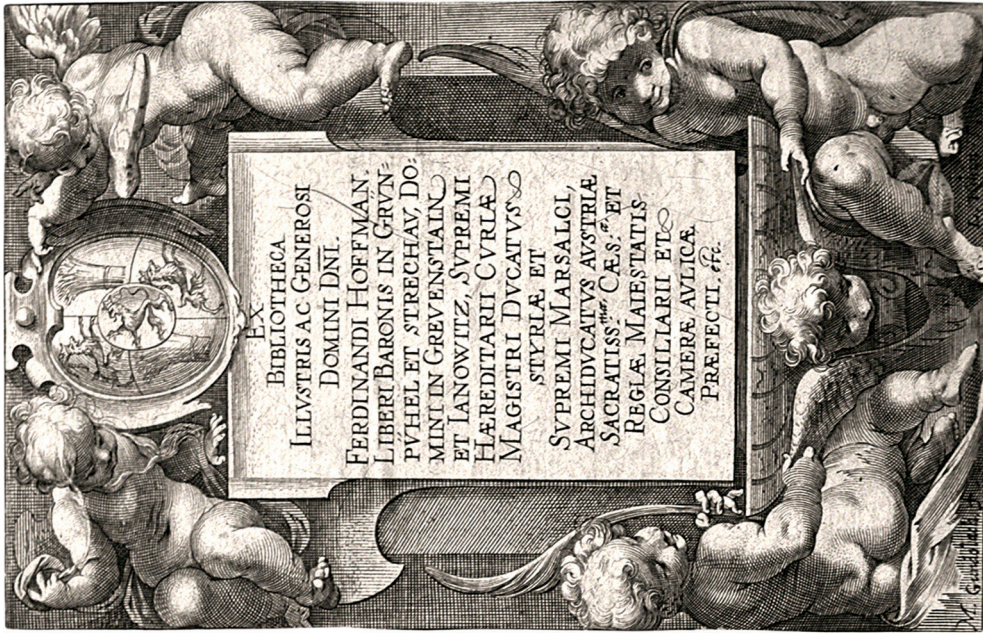 EX
BIBLIOTHECA
ILLVSTRIS AC GENEROSI
DOMINI DNI.
FERDINANDI HOFFMAN,
LIBERI BARONIS IN GRVN=
PŸHEL ET STRECHAV, DO=
MINI IN GREVENSTAIN
ET IANOWITZ, SVPREMI
HÆREDITARII CVRIÆ
MAGISTRI DVCATVS
STYRIÆ ET
SVPREMI MARSALCI,
ARCHIDVCATVS AVSTRIÆ
SACRATISS.mae CÆS.ae ET
REGIÆ MAIESTATIS
CONSILIARII ET
CAMERÆ AVLICÆ
PRÆFECTI. etc.